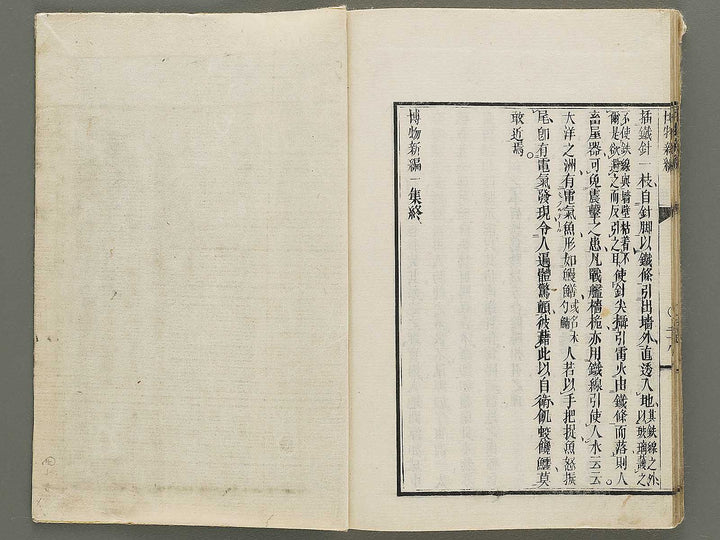 博物新編
插鐵針一枝自針脚以鐵條引出墻外直透入地其鉄線之外以玻璃護之
不使鉄線與墻壁粘着不爾是欲避之而反引之耳使針尖攝引雷火由鐵條而落則人
畜屋器可免震擊之患凡戰艦檣桅亦用鐵線引使入水云云
大洋之洲有電氣魚形如鰻鱔或名木勺鯆人若以手把捉魚怒振
尾卽有電氣發現令人遍體驚顫彼藉此以自衛飢蛟饞鱷莫
敢近焉。
博物新編一集終